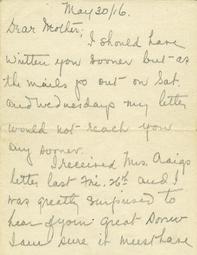 May 30/16.
Dear Mother;
I should have
written you sooner but as
the mails go out on Sat.
and Wednesdays my letter
would not reach you
any sooner.
I received Mrs.
letter last Fri. 26th and I
was greatly surprised to
hear of your great
I am sure it must have